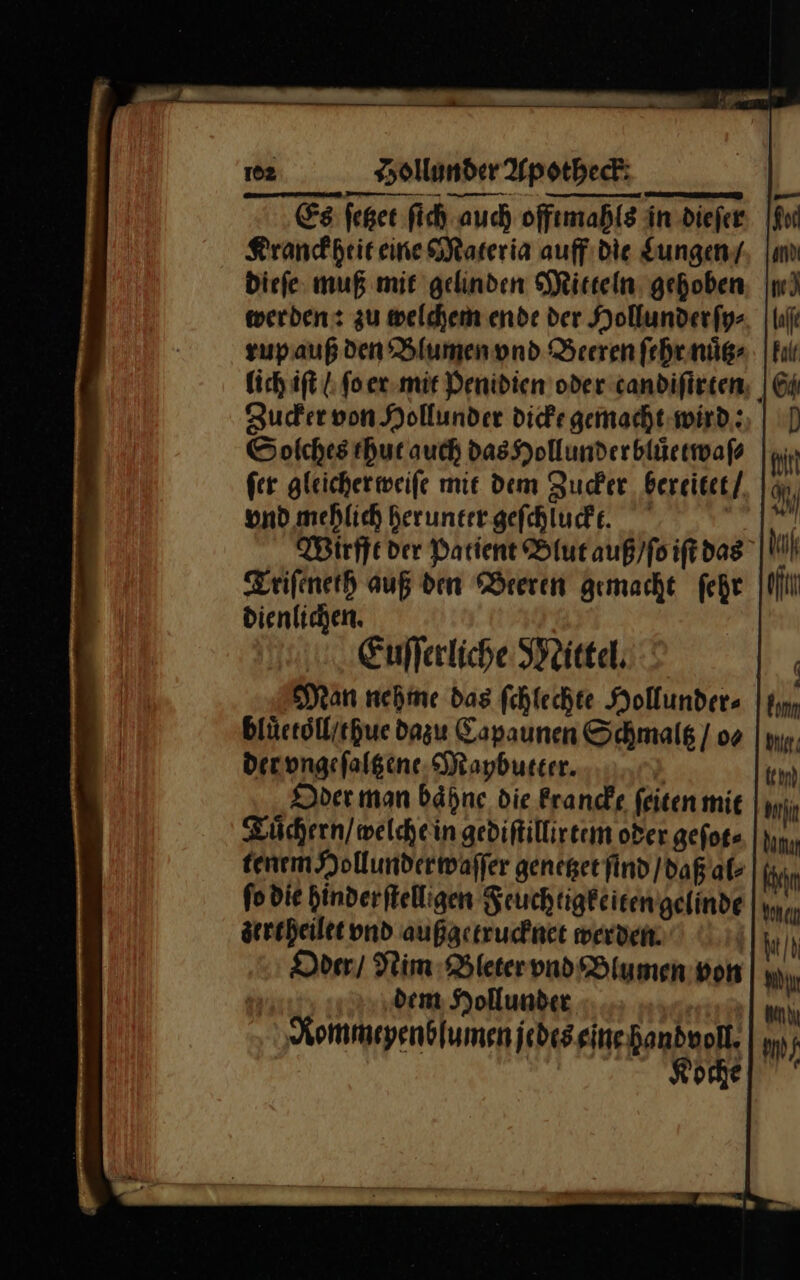 102 Hollunder Apotheck:
Es ſetzet ſich auch offtmahls in dieſer
Kranckheit eine Materia auff die Lungen/
dieſe muß mit gelinden Mitteln gehoben
werden: zu welchem ende der Hollunderſy⸗
rup auß den Blumen vnd Beeren ſehr nuͤtz⸗
lich iſt / ſo er mit Penidien oder candiſirten
Zucker von Hollunder dicke gemacht wird:
Solches thut auch das Hollunderbluͤetwaſ⸗
ſer gleicherweiſe mit dem Zucker bereitet/
vnd mehlich herunter geſchluckt.
Wirfft der Patient Blut auß/ſo iſt das
Triſeneth auß den Beeren gemacht ſehr
dienlichen.
Euſſerliche Mittel.
Man nehme das ſchlechte Hollunder⸗
bluͤetoͤll/thue dazu Capaunen Schmaltz / o⸗
der vngeſaltzene Maybutter.
Oder man baͤhne die krancke ſeiten mit
Tuͤchern/welche in gediſtillirtem oder geſot⸗
tenem Hollunderwaſſer genetzet ſind / daß al⸗
ſo die hinderſtelligen Feuchtigkeiten gelinde
zertheilet vnd außgetrucknet werden.
Oder/ Nim Bleter vnd Blumen von
dem Hollunder
Rommeyenblumen jedes eine handvoll.
Koche